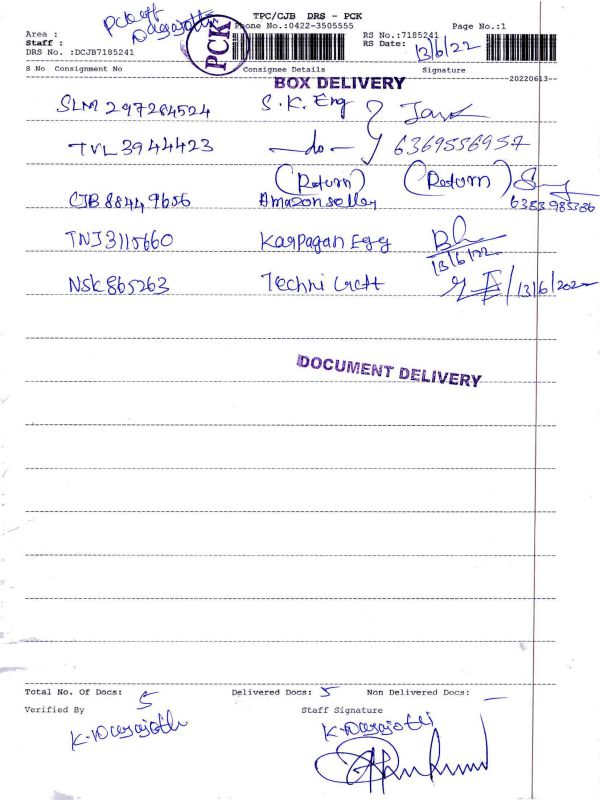 TPC/CJB DRS - PCK
Area : PCK off
Staff :
Phone No.:0422-3505555
RS No.:7185241
Page No.:1
DRS No. :DCJB7185241
RS Date: 13/6/22
PCK
S No Consignment No Consignee Details Signature
20220613
BOX DELIVERY
SLM 297284524 S.K. Eng
TVL 3944423 -do- 6369556957
(Return) (Return)
CJB 88449656 Amazon seller 6383985386
TNJ 3115660 Karpagan Egg
13/6/22
NSK 865263 Techni Craft 13/6/202
DOCUMENT DELIVERY
Total No. Of Docs: 5 Delivered Docs: 5 Non Delivered Docs: -
Verified By Staff Signature